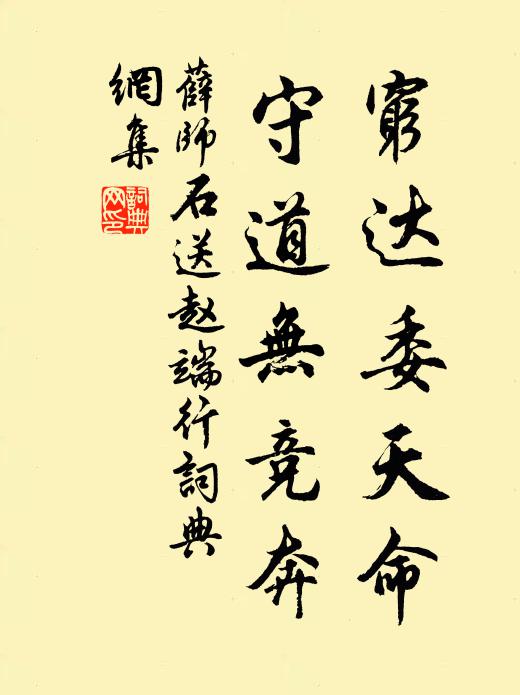 窮达委天命
守道無竞奔
薛師石送赵端行詞典
網集
詞典
网印